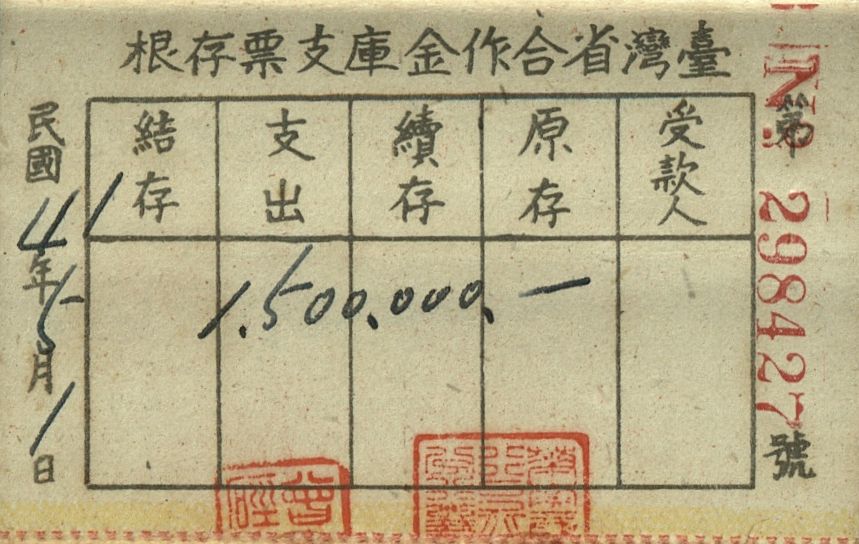 臺灣省合作金庫支票存根
第 No. 298427 號
受款人
原存
續存
支出
結存
1.500.000.—
民國41年5月1日